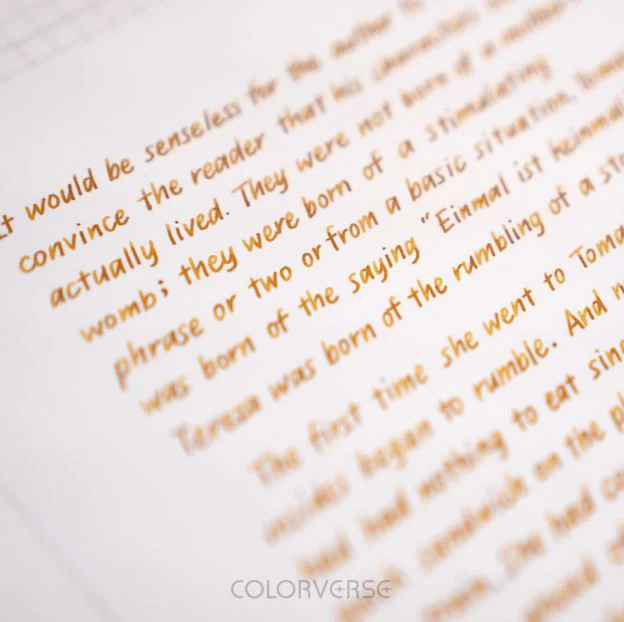 It would be senseless for the author to
convince the reader that his characters
actually lived. They were not born of a mother's
womb; they were born of a stimulating
phrase or two or from a basic situation. Tomas
was born of the saying "Einmal ist keinmal
Tereza was born of the rumbling of a sto
The first time she went to Toma
insides began to rumble. And n
had had nothing to eat sinc
pork sandwich on the pl
train. She had co
ahead of
COLORVERSE